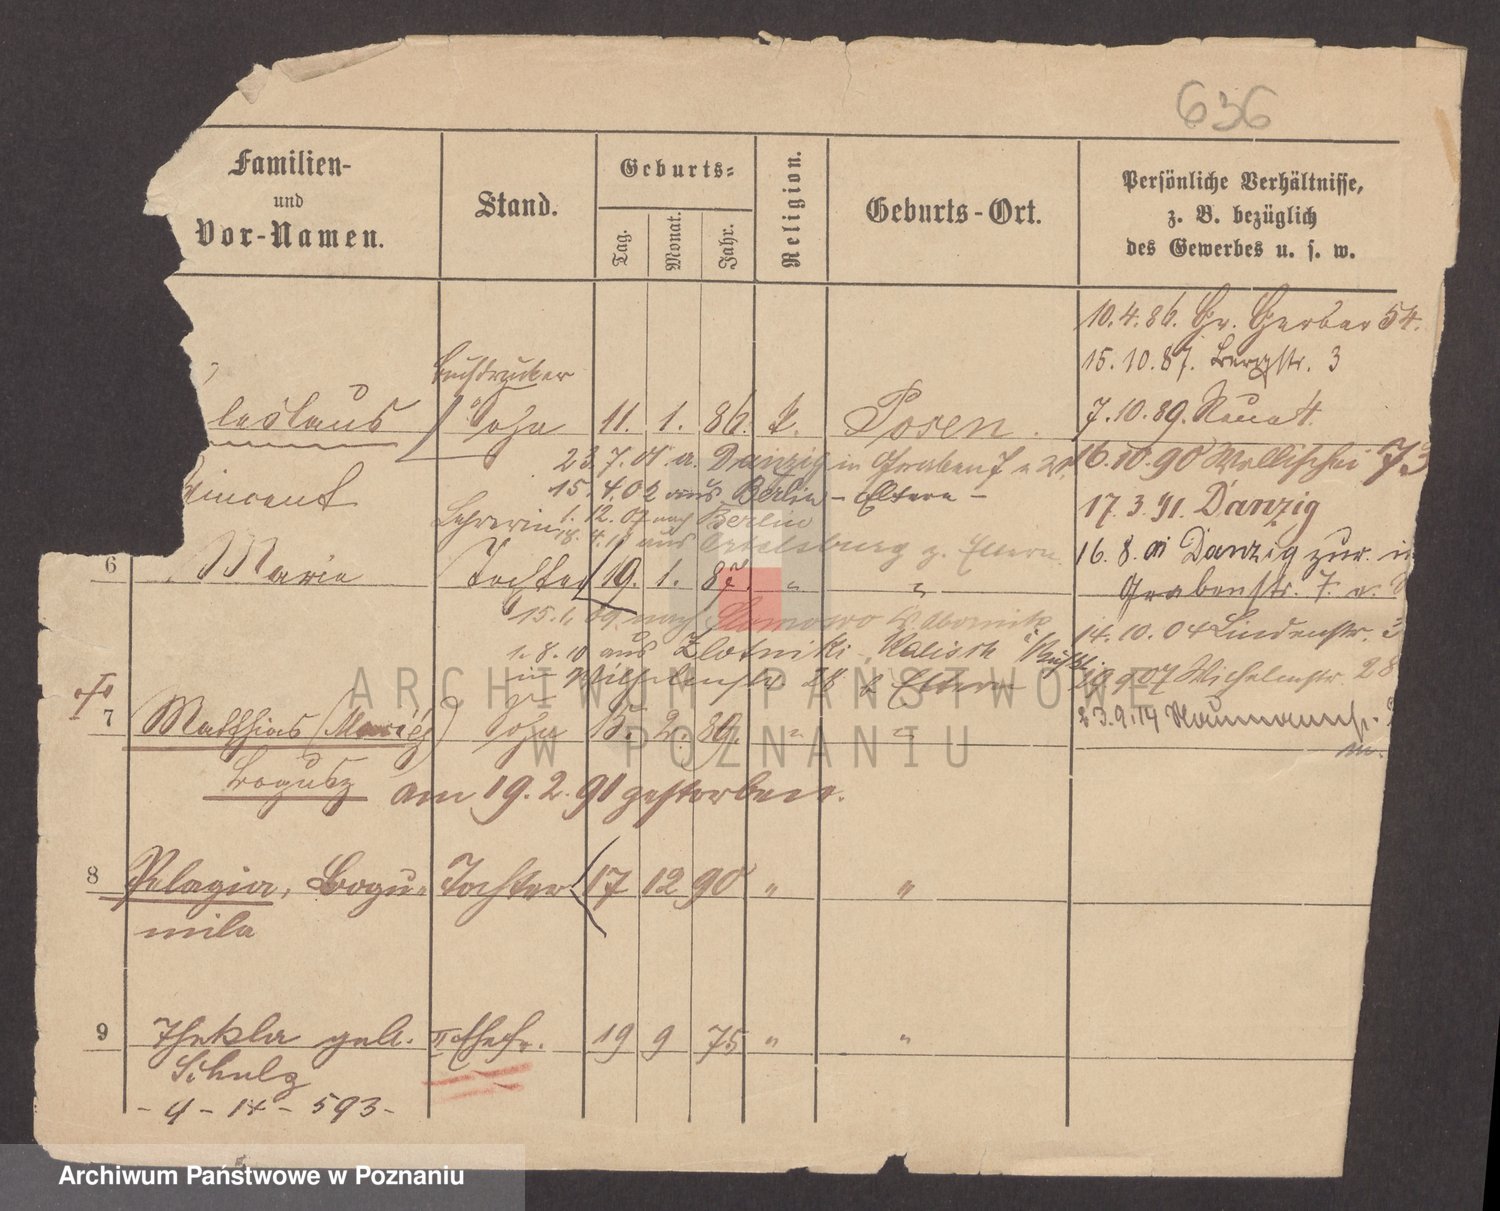 636
Familien-
und
Vor-Namen.
Stand.
Geburts-
Tag.
Monat.
Jahr.
Religion.
Geburts-Ort.
Persönliche Verhältnisse,
z. B. bezüglich
des Gewerbes u. s. w.
10.4.86. Gr. Gerber 54.
15.10.87. Bergstr. 3
Buchdrucker
leslaus Sohn 11. 1. 86. k. Posen.
7.10.89. Neue
23.7.01 a. Danzig in Graben 7
16.10.90 Wallischei 73
15.4.02 aus Berlin - Eltern -
17.3.91. Danzig
Vincent
Lehrerin 1.12.07 nach Berlin
aus Ortelsburg z. Eltern
16.8.01 Danzig zur. in
6 Marie Tochter 19. 1. 87. " "
Grabenstr. 7.
15.1.09. nach
14.10.04 Lindenstr. 3
1.8.10 aus Zlotniki, Kalisch
in Wilhelmstr 28 b Eltern
07 Wilhelmstr. 28
7 Matthias ( ) Sohn 15. 2. 89. " "
23.9.14 Naumannstr.
Bogusz am 19.2.91 gestorben.
8 Pelagia, Bogu- Tochter 17 12 90 " "
mila
9 Thekla geb. II Ehefr. 19 9 75 " "
Schulz
- 4 - 14 - 593 -
ARCHIWUM PAŃSTWOWE
W POZNANIU
Archiwum Państwowe w Poznaniu